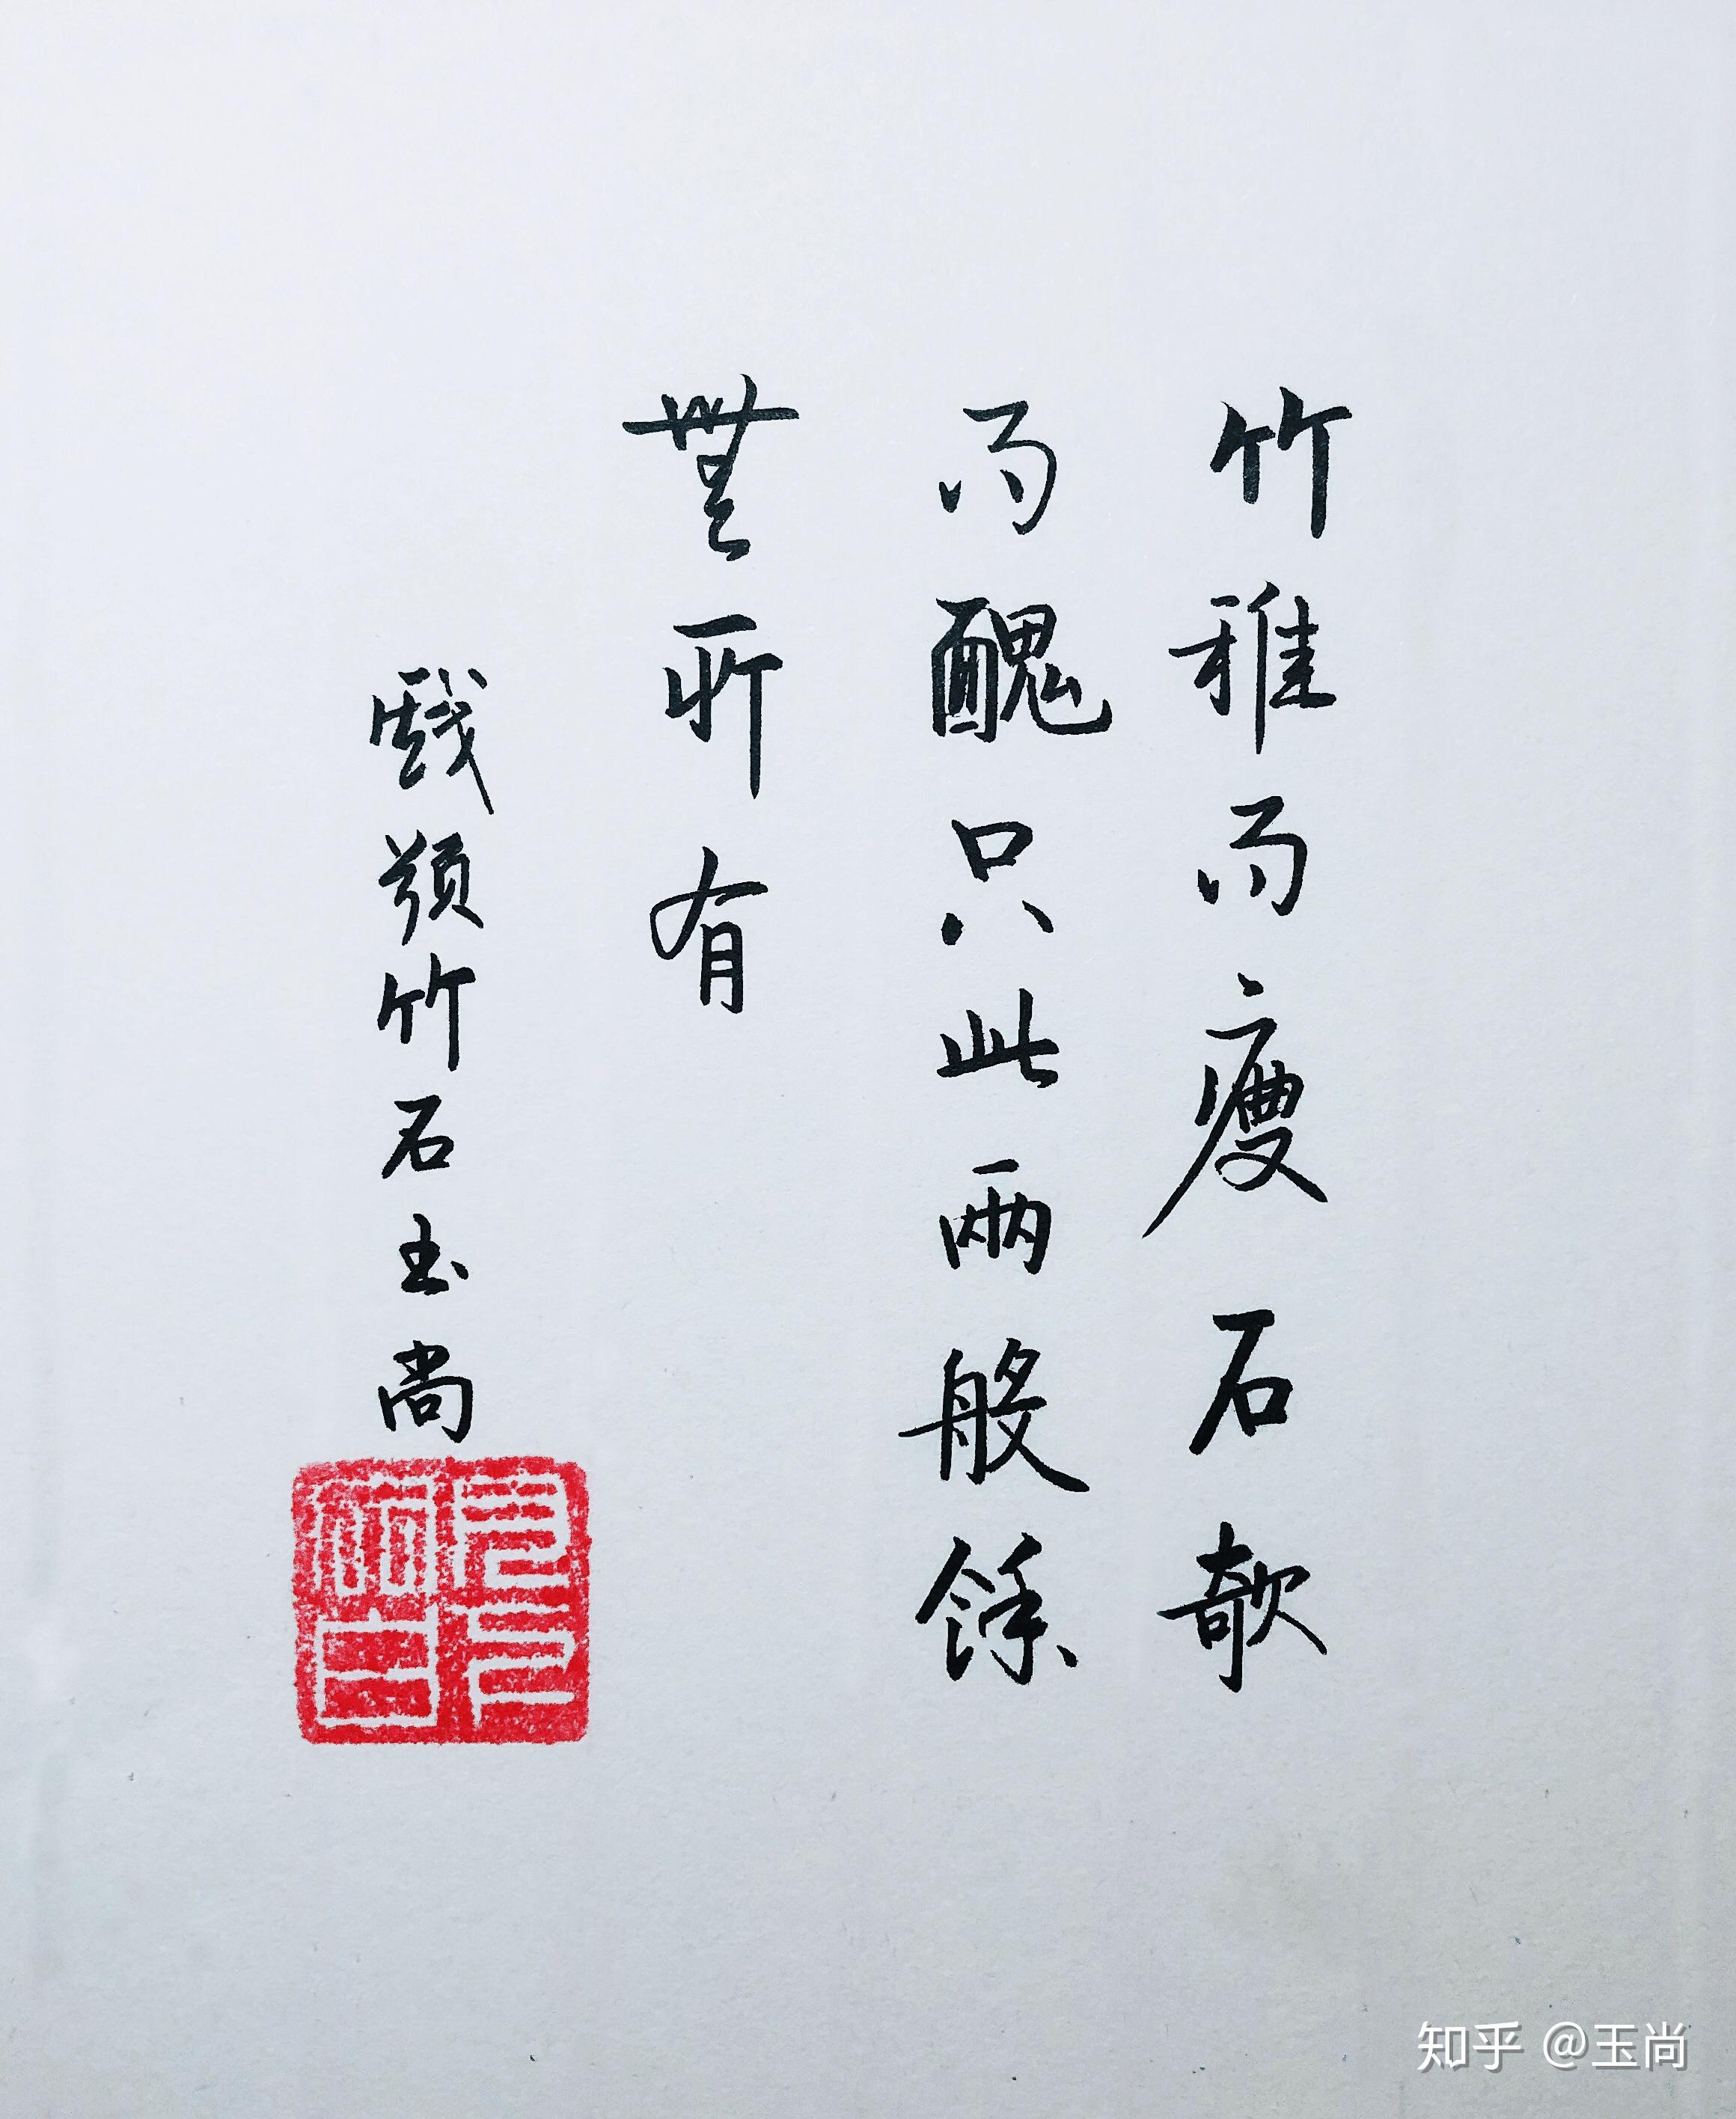 竹稚而瘦石欹
而醜只此兩般餘
無所有
戲題竹石玉尚
知乎 @玉尚